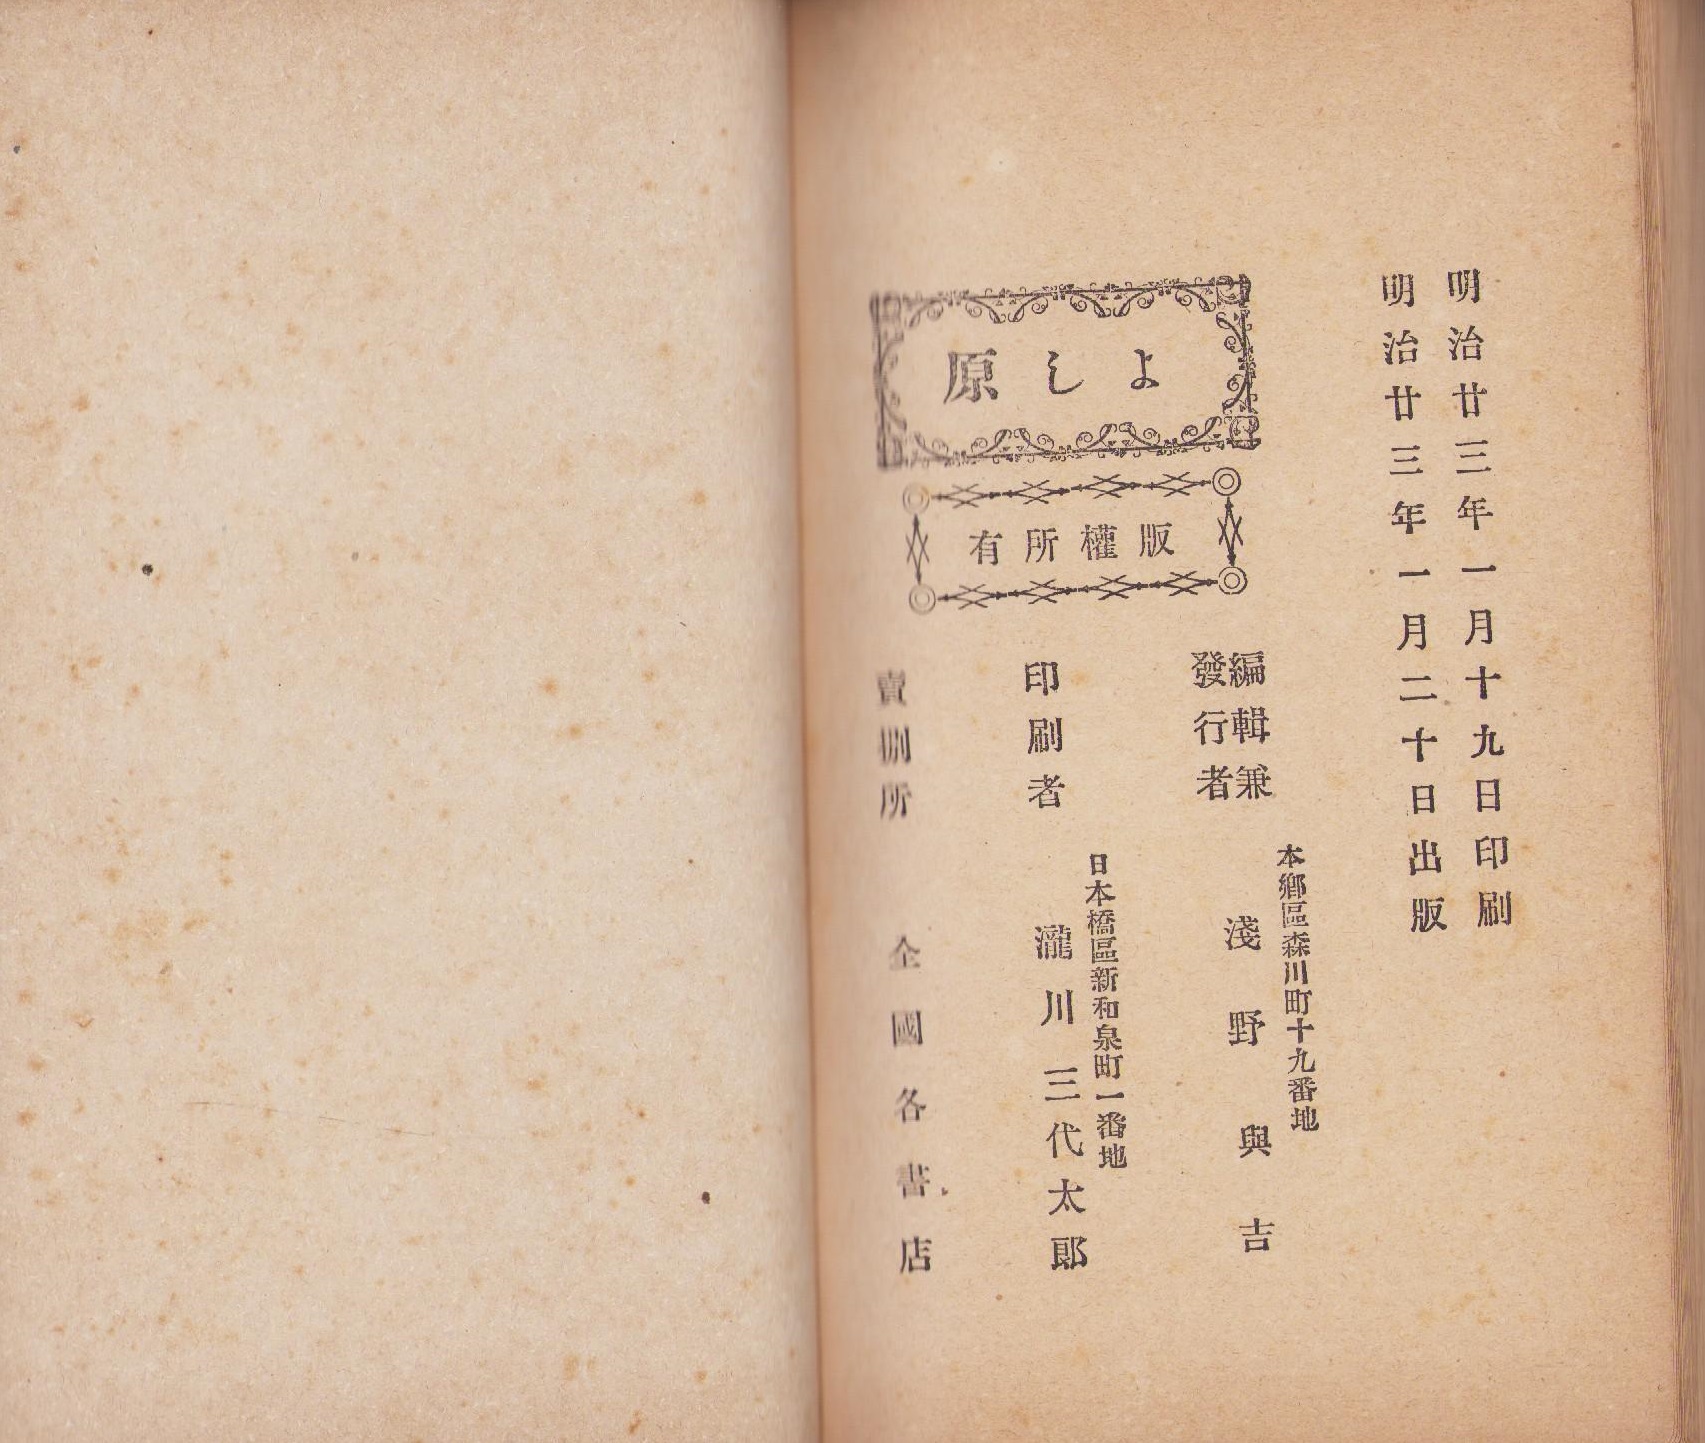 明治廿三年一月十九日印刷
明治廿三年一月二十日出版
よし原
版權所有
編輯兼
發行者
本鄕區森川町十九番地
淺野與吉
印刷者
日本橋區新和泉町一番地
瀧川三代太郎
賣捌所
全國各書店